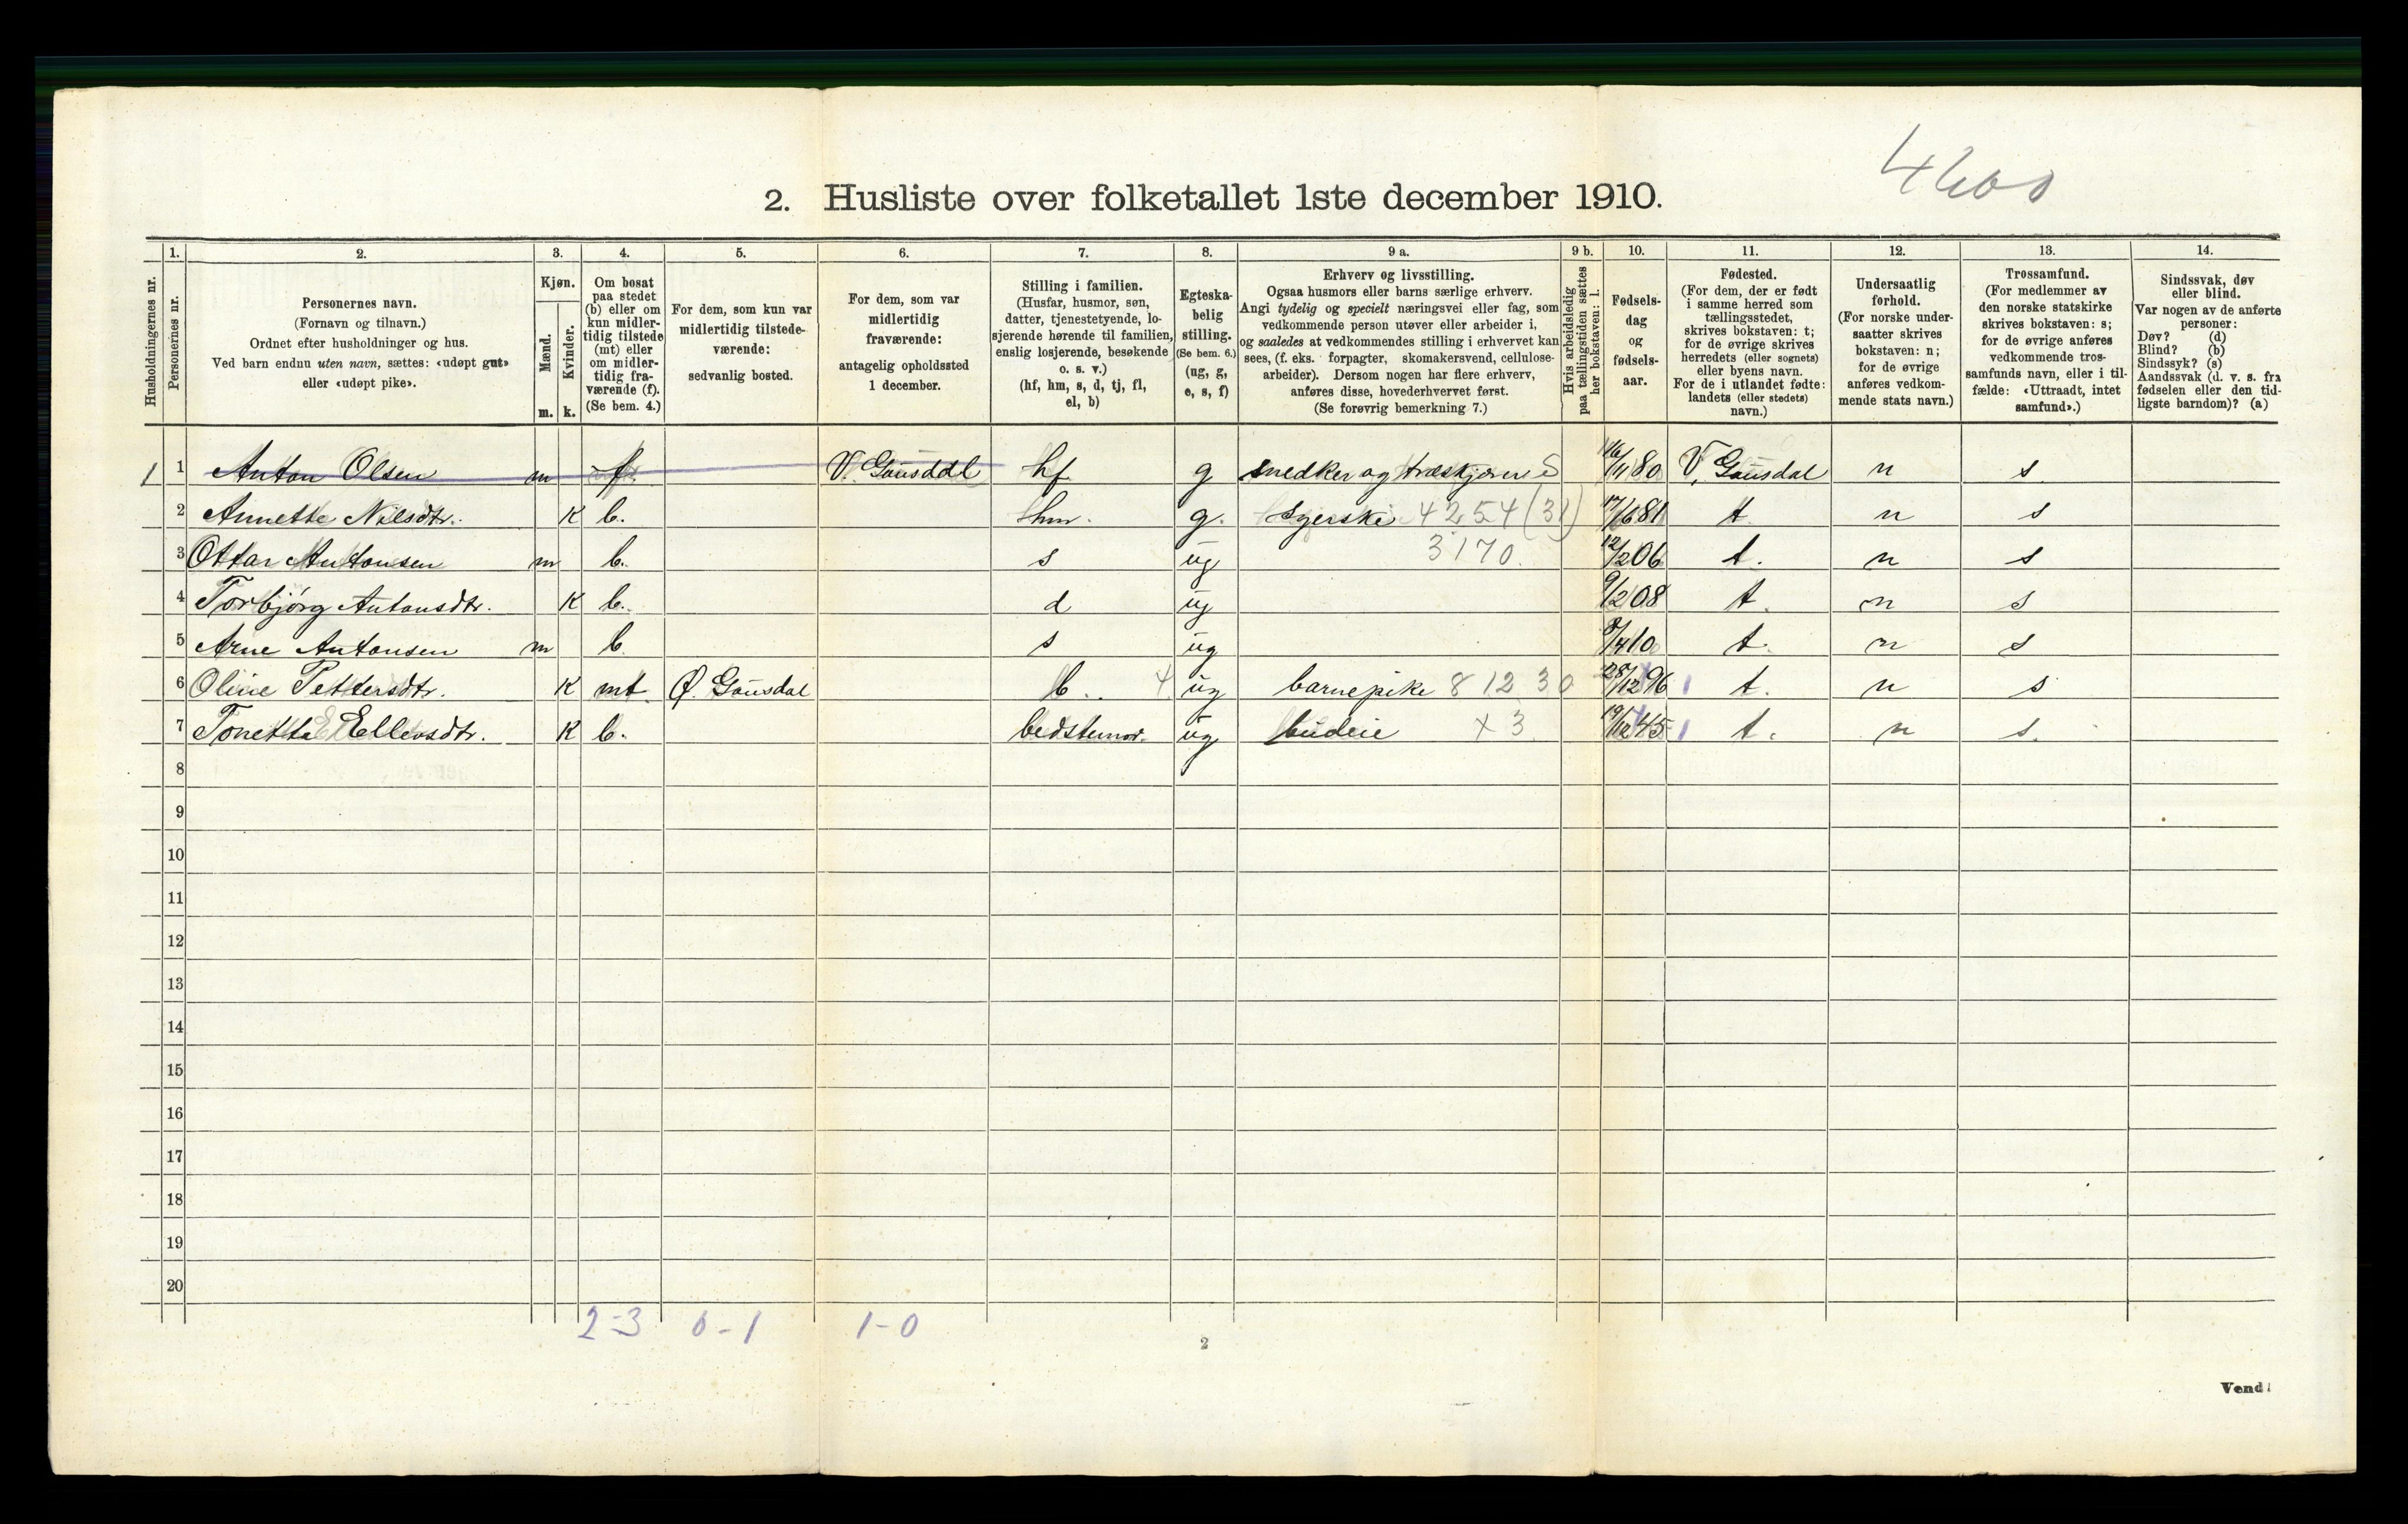 4600
2. Husliste over folketallet 1ste december 1910.
Husholdningernes nr.
1. Personernes nr.
2. Personernes navn.
(Fornavn og tilnavn.)
Ordnet efter husholdninger og hus.
Ved barn endnu uten navn, sættes: «udøpt gut»
eller «udøpt pike».
3. Kjøn.
Mænd. m.
Kvinder. k.
4. Om bosat
paa stedet
(b) eller om
kun midler-
tidig tilstede
(mt) eller
om midler-
tidig fra-
værende (f).
(Se bem. 4.)
5. For dem, som kun var
midlertidig tilstede-
værende:
sedvanlig bosted.
6. For dem, som var
midlertidig
fraværende:
antagelig opholdssted
1 december.
7. Stilling i familien.
(Husfar, husmor, søn,
datter, tjenestetyende, lo-
sjerende hørende til familien,
enslig losjerende, besøkende
o. s. v.)
(hf, hm, s, d, tj, fl,
el, b)
8. Egteska-
belig
stilling.
(Se bem. 6.)
(ug, g,
e, s, f)
9 a. Erhverv og livsstilling.
Ogsaa husmors eller barns særlige erhverv.
Angi tydelig og specielt næringsvei eller fag, som
vedkommende person utøver eller arbeider i,
og saaledes at vedkommendes stilling i erhvervet kan
sees, (f. eks. forpagter, skomakersvend, cellulose-
arbeider). Dersom nogen har flere erhverv,
anføres disse, hovederhvervet først.
(Se forøvrig bemerkning 7.)
9 b. Hvis arbeidsledig
paa tællingstiden sættes
her bokstaven: l.
10. Fødsels-
dag
og
fødsels-
aar.
11. Fødested.
(For dem, der er født
i samme herred som
tællingsstedet,
skrives bokstaven: t;
for de øvrige skrives
herredets (eller sognets)
eller byens navn.
For de i utlandet fødte:
landets (eller stedets)
navn.)
12. Undersaatlig
forhold.
(For norske under-
saatter skrives
bokstaven: n;
for de øvrige
anføres vedkom-
mende stats navn.)
13. Trossamfund.
(For medlemmer av
den norske statskirke
skrives bokstaven: s;
for de øvrige anføres
vedkommende tros-
samfunds navn, eller i til-
fælde: «Uttraadt, intet
samfund».)
14. Sindssvak, døv
eller blind.
Var nogen av de anførte
personer:
Døv? (d)
Blind? (b)
Sindssyk? (s)
Aandssvak (d. v. s. fra
fødselen eller den tid-
ligste barndom)? (a)
1 1 Anton Olsen m f V. Gausdal hf g snedker og træskjærer S 16/11 80 V. Gausdal n s
2 Annette Nilsdtr. K b. hm. g. Syerske 4254 (31) 17/6 81 t n s
3 Ottar Antonsen m b. s ug 3170. 12/2 06 t. n s
4 Torbjörg Antonsdtr. K b. d ug 9/2 08 t. n s
5 Arne Antonsen m b. s ug 8/4 10 t. n s
6 Oline Pettersdtr. K mt Ø. Gausdal b. 4 ug barnepike 8 12 30 28/12 96 1 t. n s
7 Tonetta Ellevsdtr. K b. bedstemor. ug budeie x 3 19/12 45 1 t. n s.
8
9
10
11
12
13
14
15
16
17
18
19
20
2-3 0-1 1-0
2
Vend!